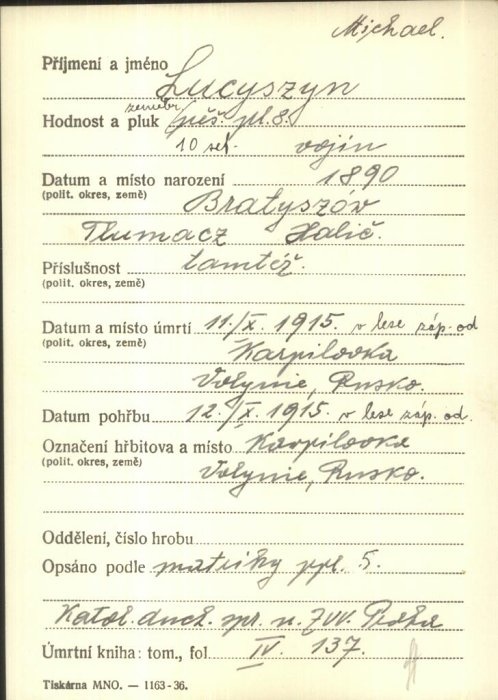 Michael.
Příjmení a jméno Lucyszyn
zeměbr.
Hodnost a pluk pěš. pl. 8.
10 set. vojín
Datum a místo narození 1890
(polit. okres, země) Bratyszów
Tlumacz Halič.
Příslušnost tamtéž.
(polit. okres, země)
Datum a místo úmrtí 11./X. 1915. v lese záp. od
(polit. okres, země) Karpilovka
Volynie, Rusko.
Datum pohřbu 12./X. 1915. v lese záp. od.
Označení hřbitova a místo Karpilovka
(polit. okres, země) Volynie, Rusko.
Oddělení, číslo hrobu
Opsáno podle matriky ppl. 5.
Katol. duch. spr. n. ZVV. Praha
Úmrtní kniha: tom., fol. IV. 137.
Tiskárna MNO. — 1163-36.